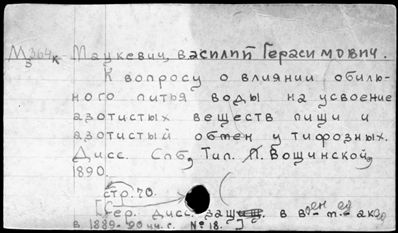 М 364 к Маукевич, Василий Герасимович.
5
К вопросу о влиянии обиль-
ного питья воды на усвоение
азотистых веществ пищи и
азотистый обмен у тифозных.
Дисс. Спб, Тип. П. Вощинской,
1890.
стр. 70.
[Сер. дисс. защищ. в в.-м. ак.
в 1889-90 уч. г. № 18.]